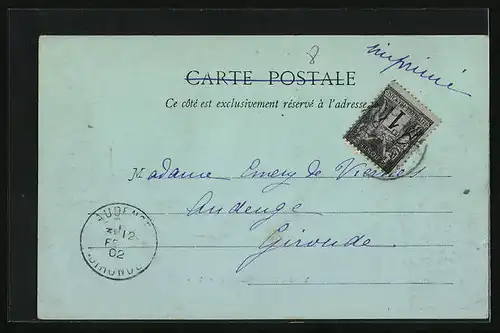 8
imprimé
CARTE POSTALE
Ce côté est exclusivement réservé à l'adresse
Madame Emery de
Audenge
Gironde
AUDENGE
12
FE
02
GIRONDE